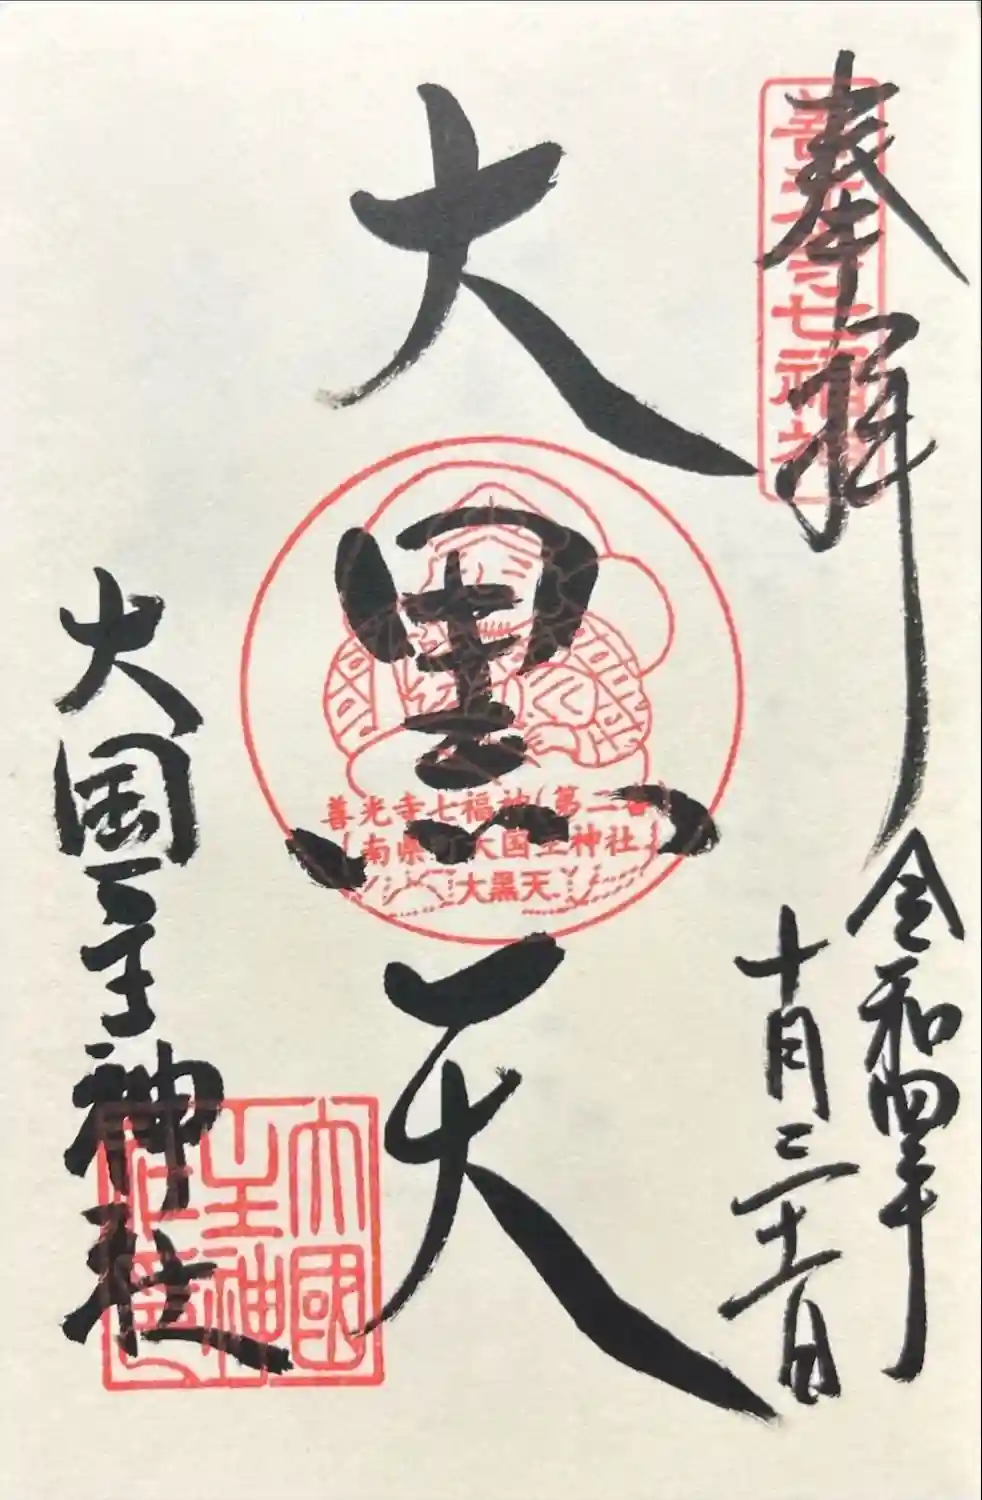 奉拝
善光寺七福神
令和四年
十月三十一日
大黒天
善光寺七福神(第二番)
(南県町大国主神社)
大黒天
大国主神社
大國主神社